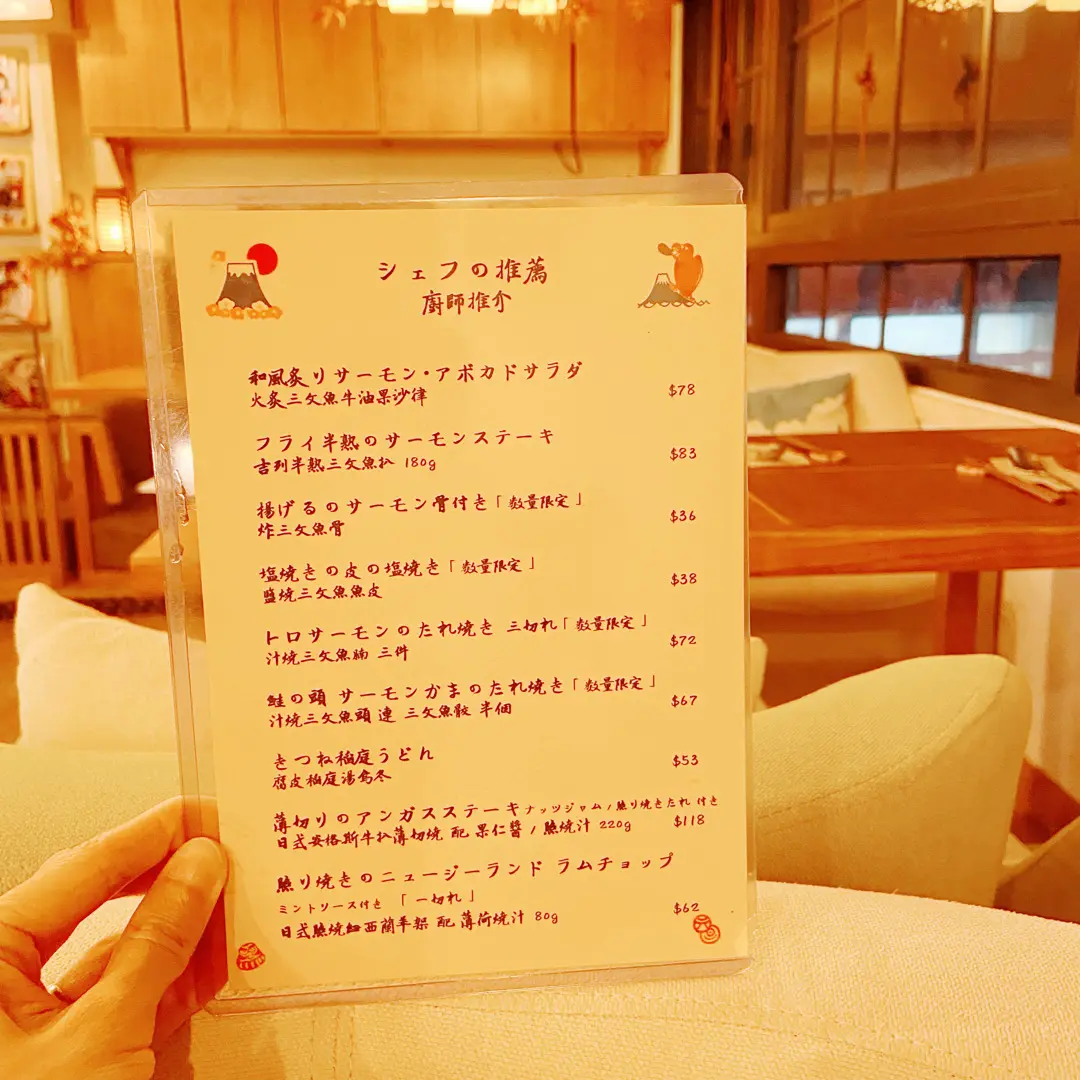 シェフの推薦
廚師推介
和風炙りサーモン・アボカドサラダ
火炙三文魚牛油果沙律
$78
フライ半熟のサーモンステーキ
吉列半熟三文魚扒 180g
$83
揚げるのサーモン骨付き「数量限定」
炸三文魚骨
$36
塩焼きの皮の塩焼き「数量限定」
鹽燒三文魚魚皮
$38
トロサーモンのたれ焼き 三切れ「数量限定」
汁燒三文魚腩 三件
$72
鮭の頭 サーモンかまのたれ焼き「数量限定」
汁燒三文魚頭 連 三文魚鮫 半個
$67
きつね稲庭うどん
腐皮稲庭湯烏冬
$53
薄切りのアンガスステーキナッツジャム/照り焼きたれ 付き
日式安格斯牛扒薄切燒 配 果仁醬/照燒汁 220g $118
照り焼きのニュージーランド ラムチョップ
ミントソース付き 「一切れ」
日式照燒紐西蘭羊架 配 薄荷燒汁 80g
$62